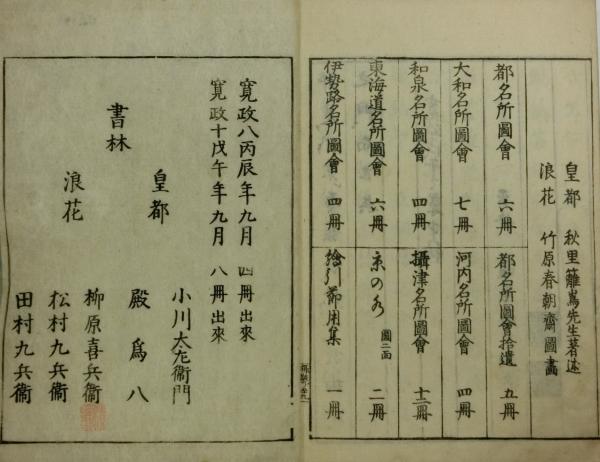 皇都 秋里籬嶌先生著述
浪花 竹原春朝齋圖畫
都名所圖會 六冊
大和名所圖會 七冊
和泉名所圖會 四冊
東海道名所圖會 六冊
伊勢路名所圖會 四冊
都名所圖會拾遺 五冊
河内名所圖會 四冊
攝津名所圖會 十二冊
京の水 圖二面 二冊
繪引節用集 一冊
寛政八丙辰年九月 四冊出來
寛政十戊午年九月 八冊出來
書林
皇都
小川太左衞門
殿爲八
浪花
柳原喜兵衞
松村九兵衞
田村九兵衞